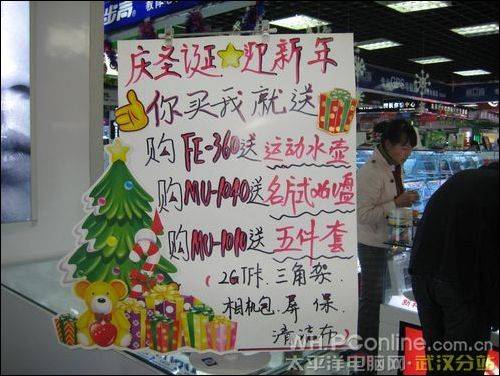 步高
庆圣诞☆迎新年
你买我就送
购FE-360送运动水壶
购MU-1040送名试
购MU-1010送五件套
(2GT卡.三角架.
相机包.屏保.
清洁布)
PConline.com.cn
太平洋电脑网·武汉分站